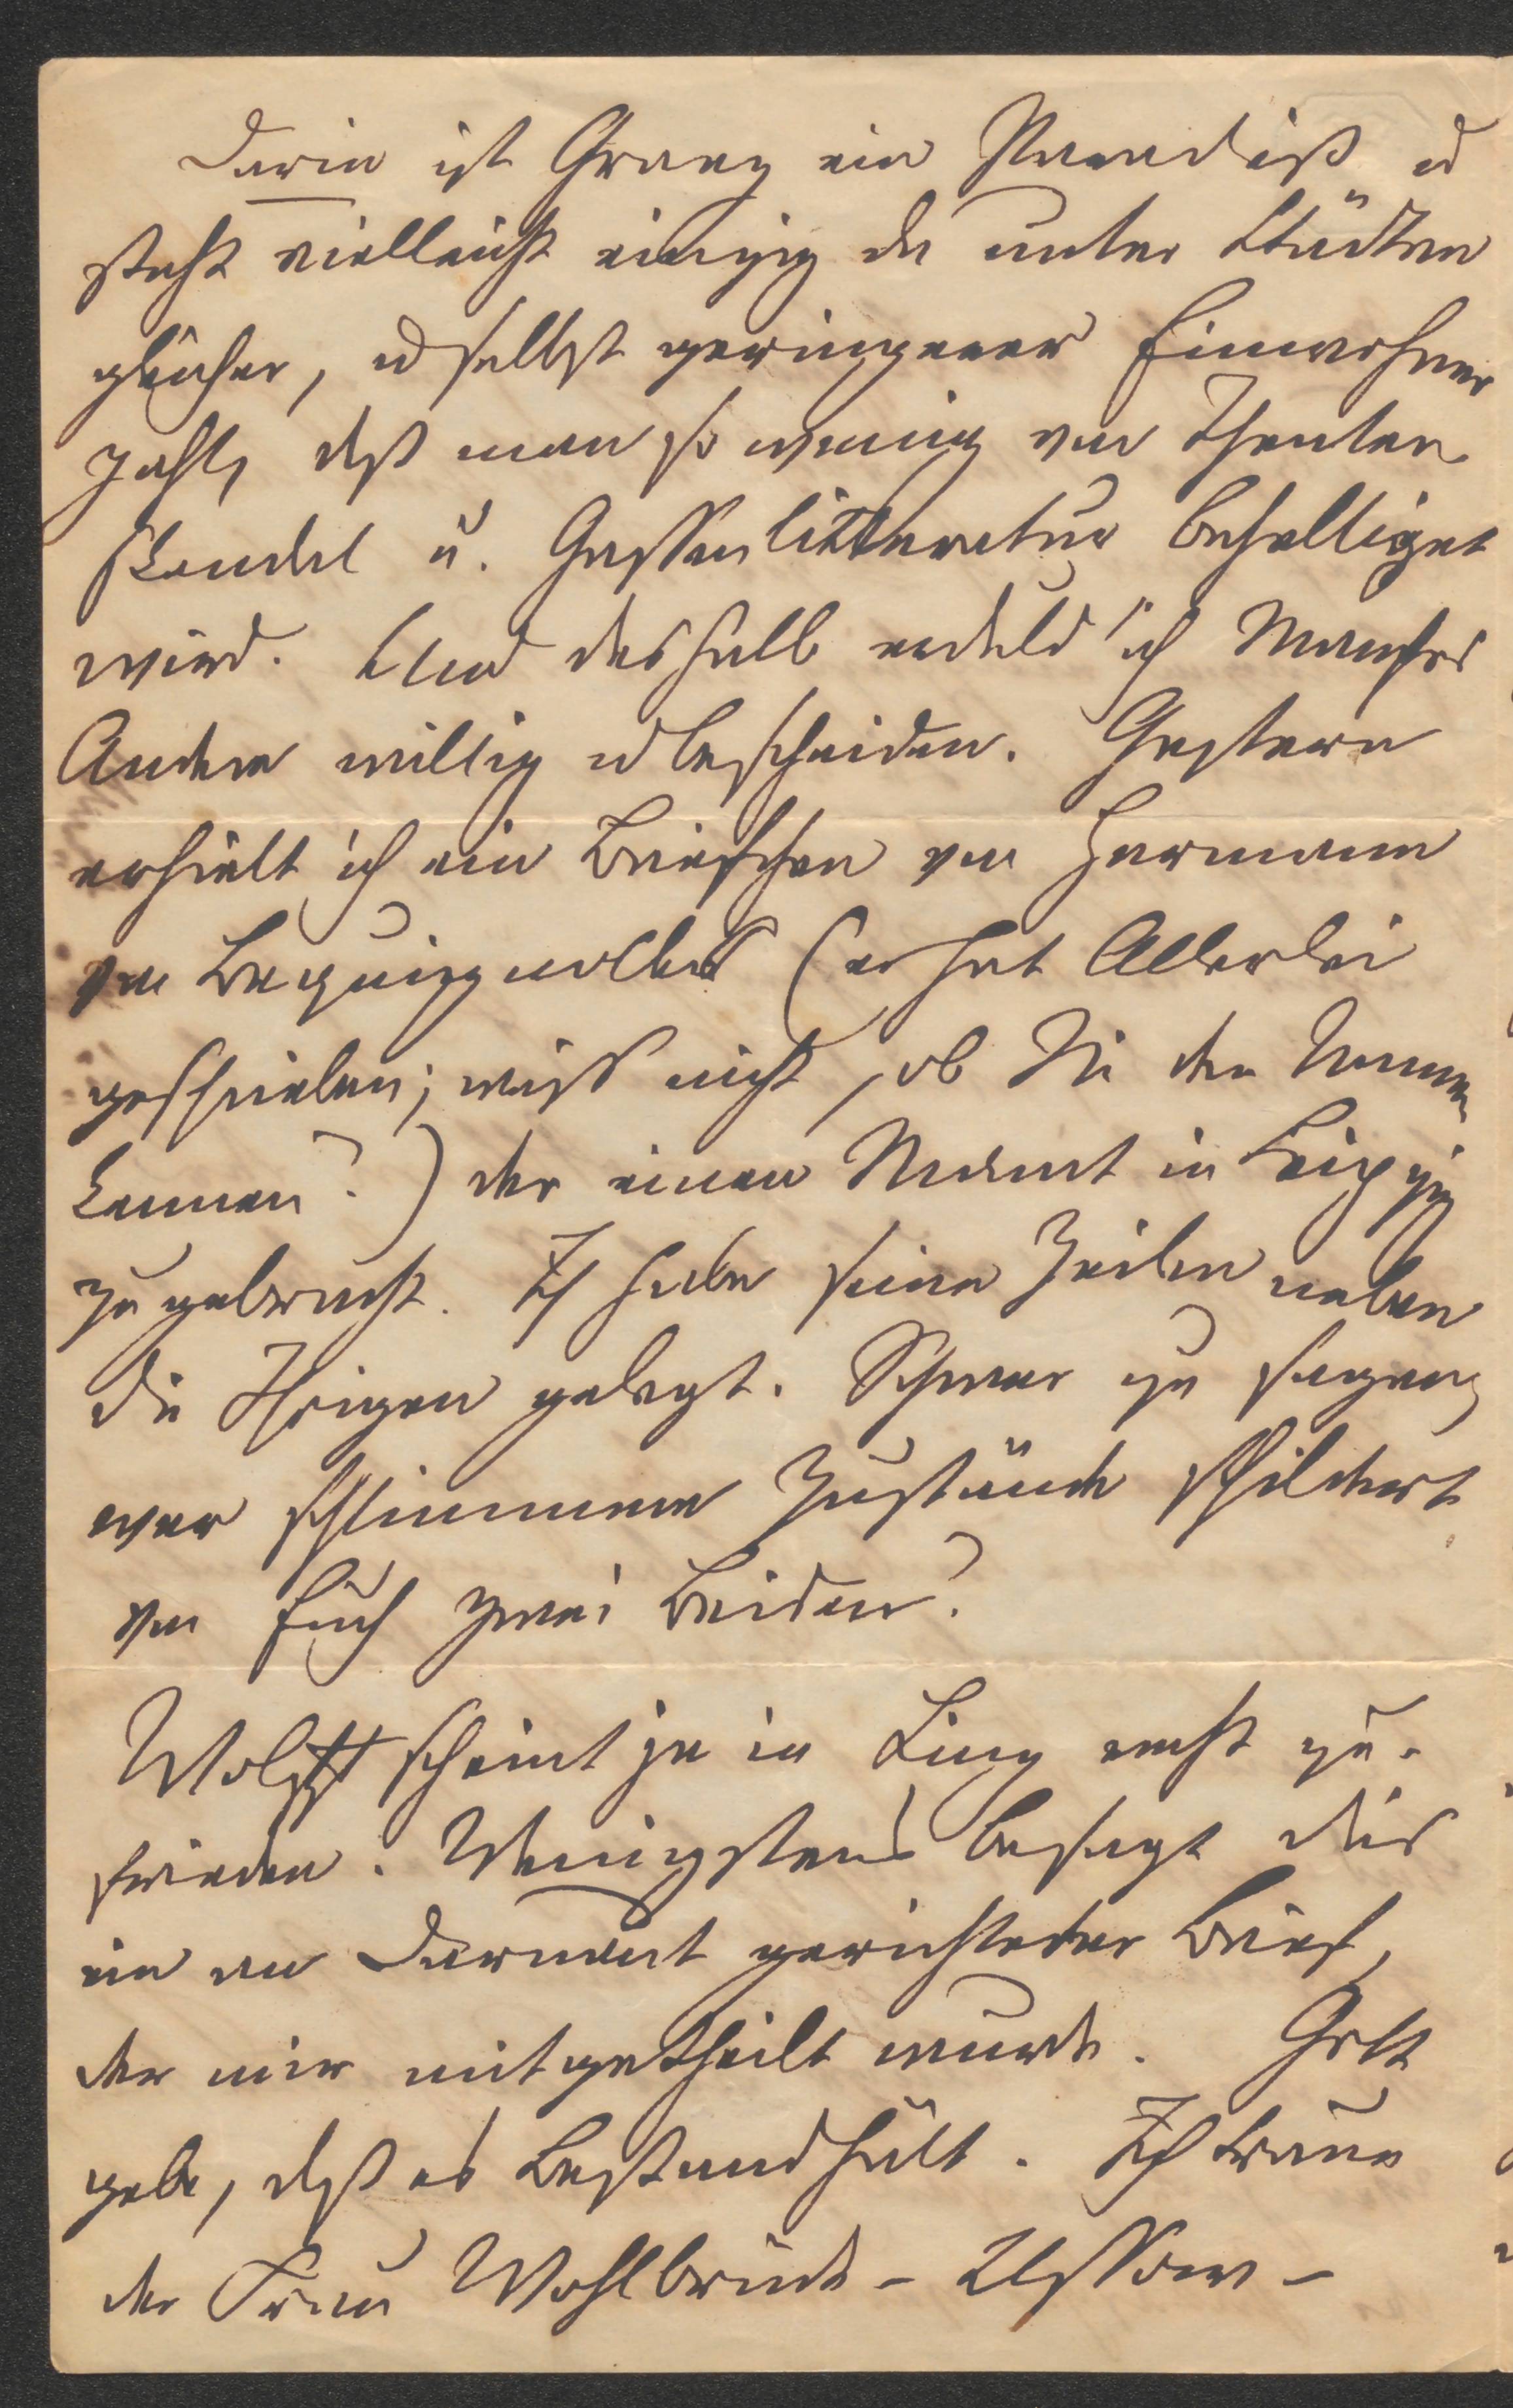 Darin ist Graz ein Paradiß u
steht vielleicht einzig da unter Städten
gleicher, u selbst geringerer Einwohner
zahl, daß man so wenig von Theater
skandal u. Gassenlitteratur behelliget
wird. Und deshalb erduld' ich Manches
Andere willig u bescheiden. Gestern
erhielt ich ein Briefchen von Hermann
von Bequignolles (er hat Allerlei
geschrieben; weiß nicht, ob Sie den Namen
kennen?) der einen Monat in Leipzig
zugebracht. Ich habe seine Zeilen neben
die Ihrigen gelegt. Schwer zu sagen,
wer schlimmere Zustände schildert
von Euch zwei Beiden?
Wolff scheint ja in Linz recht zu-
frieden. Wenigstens besagt dies
ein an Darmaut gerichteter Brief,
der mir mitgetheilt wurde. Gott
gebe, daß es Bestand hält. Ich traue
der Frau Wohlbrück-